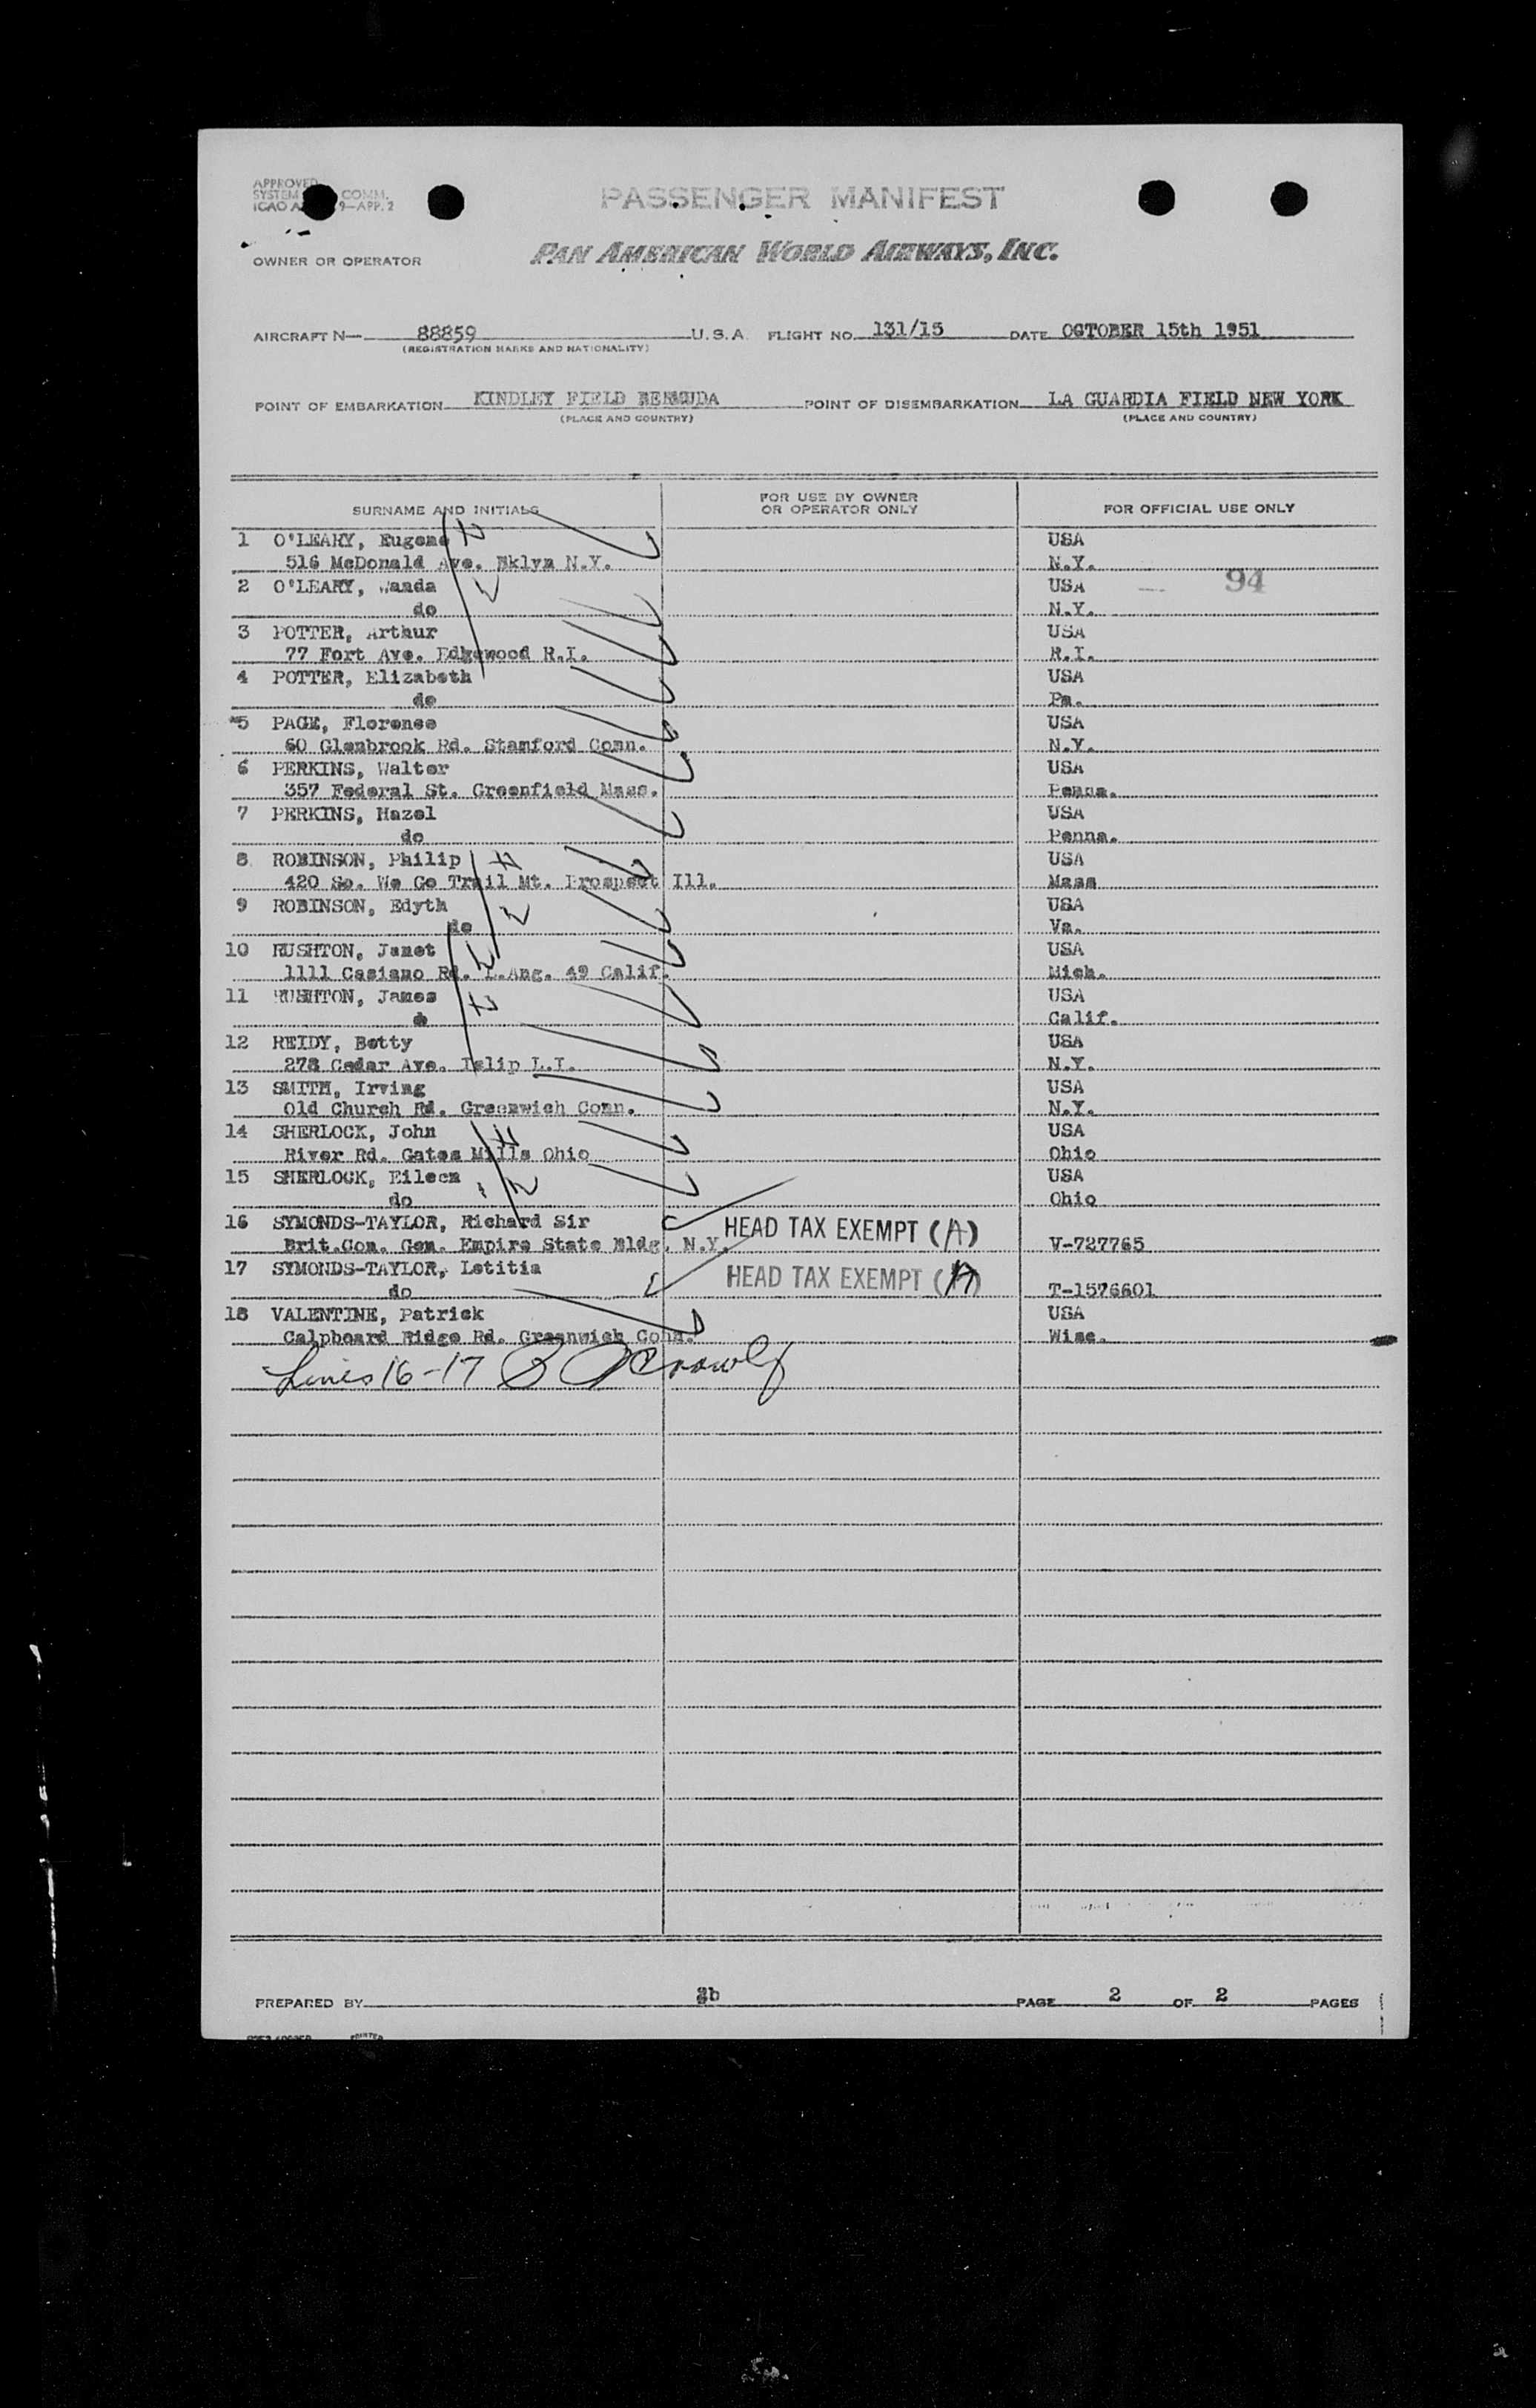 APPROVED
SYSTEM COMM.
ICAO 9—APP. 2
PASSENGER MANIFEST
OWNER OR OPERATOR
PAN AMERICAN WORLD AIRWAYS, INC.
AIRCRAFT N— 88859 U.S.A. FLIGHT NO. 131/15 DATE OCTOBER 15th 1951
(REGISTRATION MARKS AND NATIONALITY)
POINT OF EMBARKATION KINDLEY FIELD BERMUDA POINT OF DISEMBARKATION LA GUARDIA FIELD NEW YORK
(PLACE AND COUNTRY) (PLACE AND COUNTRY)
SURNAME AND INITIALS FOR USE BY OWNER OR OPERATOR ONLY FOR OFFICIAL USE ONLY
1 O'LEARY, Eugene USA
516 McDonald Ave. Bklyn N.Y. N.Y.
2 O'LEARY, Wanda USA 94
do N.Y.
3 POTTER, Arthur USA
77 Fort Ave. Edgewood R.I. R.I.
4 POTTER, Elizabeth USA
do Pa.
5 PAGE, Florence USA
60 Glenbrook Rd. Stamford Conn. N.Y.
6 PERKINS, Walter USA
357 Federal St. Greenfield Mass. Penna.
7 PERKINS, Hazel USA
do Penna.
8 ROBINSON, Philip USA
420 So. We Go Trail Mt. Prospect Ill. Mass
9 ROBINSON, Edyth USA
do Va.
10 RUSHTON, Janet USA
1111 Casiano Rd. L.Ang. 49 Calif. Mich.
11 RUSHTON, James USA
do Calif.
12 REIDY, Betty USA
278 Cedar Ave. Islip L.I. N.Y.
13 SMITH, Irving USA
Old Church Rd. Greenwich Conn. N.Y.
14 SHERLOCK, John USA
River Rd. Gates Mills Ohio Ohio
15 SHERLOCK, Eileen USA
do Ohio
16 SYMONDS-TAYLOR, Richard Sir HEAD TAX EXEMPT (A)
Brit.Con. Gen. Empire State Bldg. N.Y. V-727765
17 SYMONDS-TAYLOR, Letitia HEAD TAX EXEMPT (A)
do T-1576601
18 VALENTINE, Patrick USA
Calpboard Ridge Rd. Greenwich Conn. Wisc.
Lines 16-17
PREPARED BY PAGE 2 OF 2 PAGES